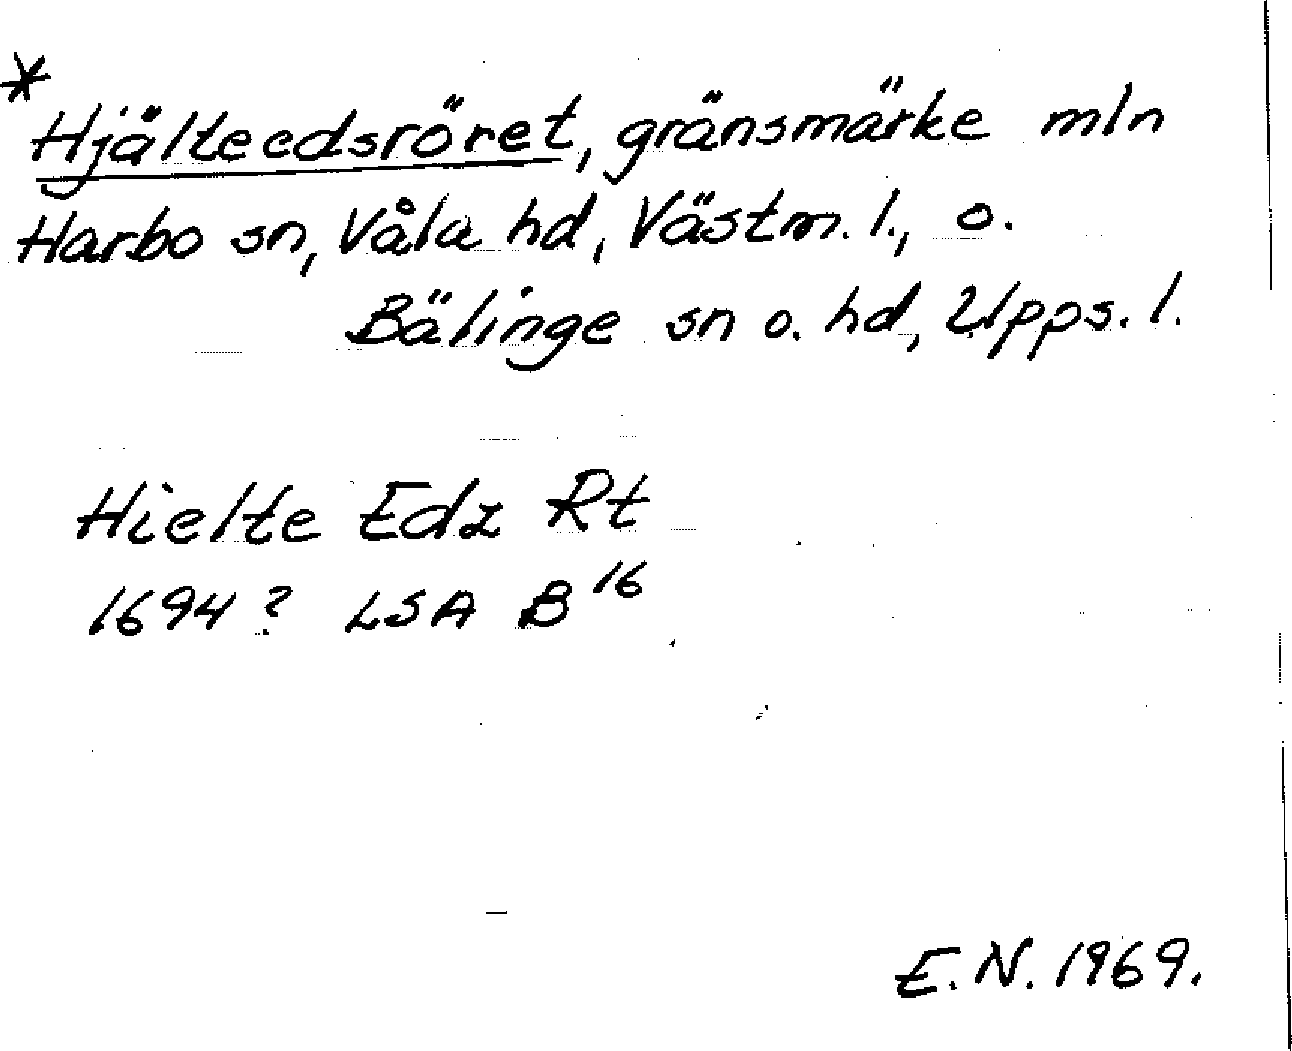 * Hjälteedsröret, gränsmärke mln
Harbo sn, Våla hd, Västm. l., o.
Bälinge sn o. hd, Upps. l.
Hielte Edz Rt
1694? LSA B 16
E. N. 1969.